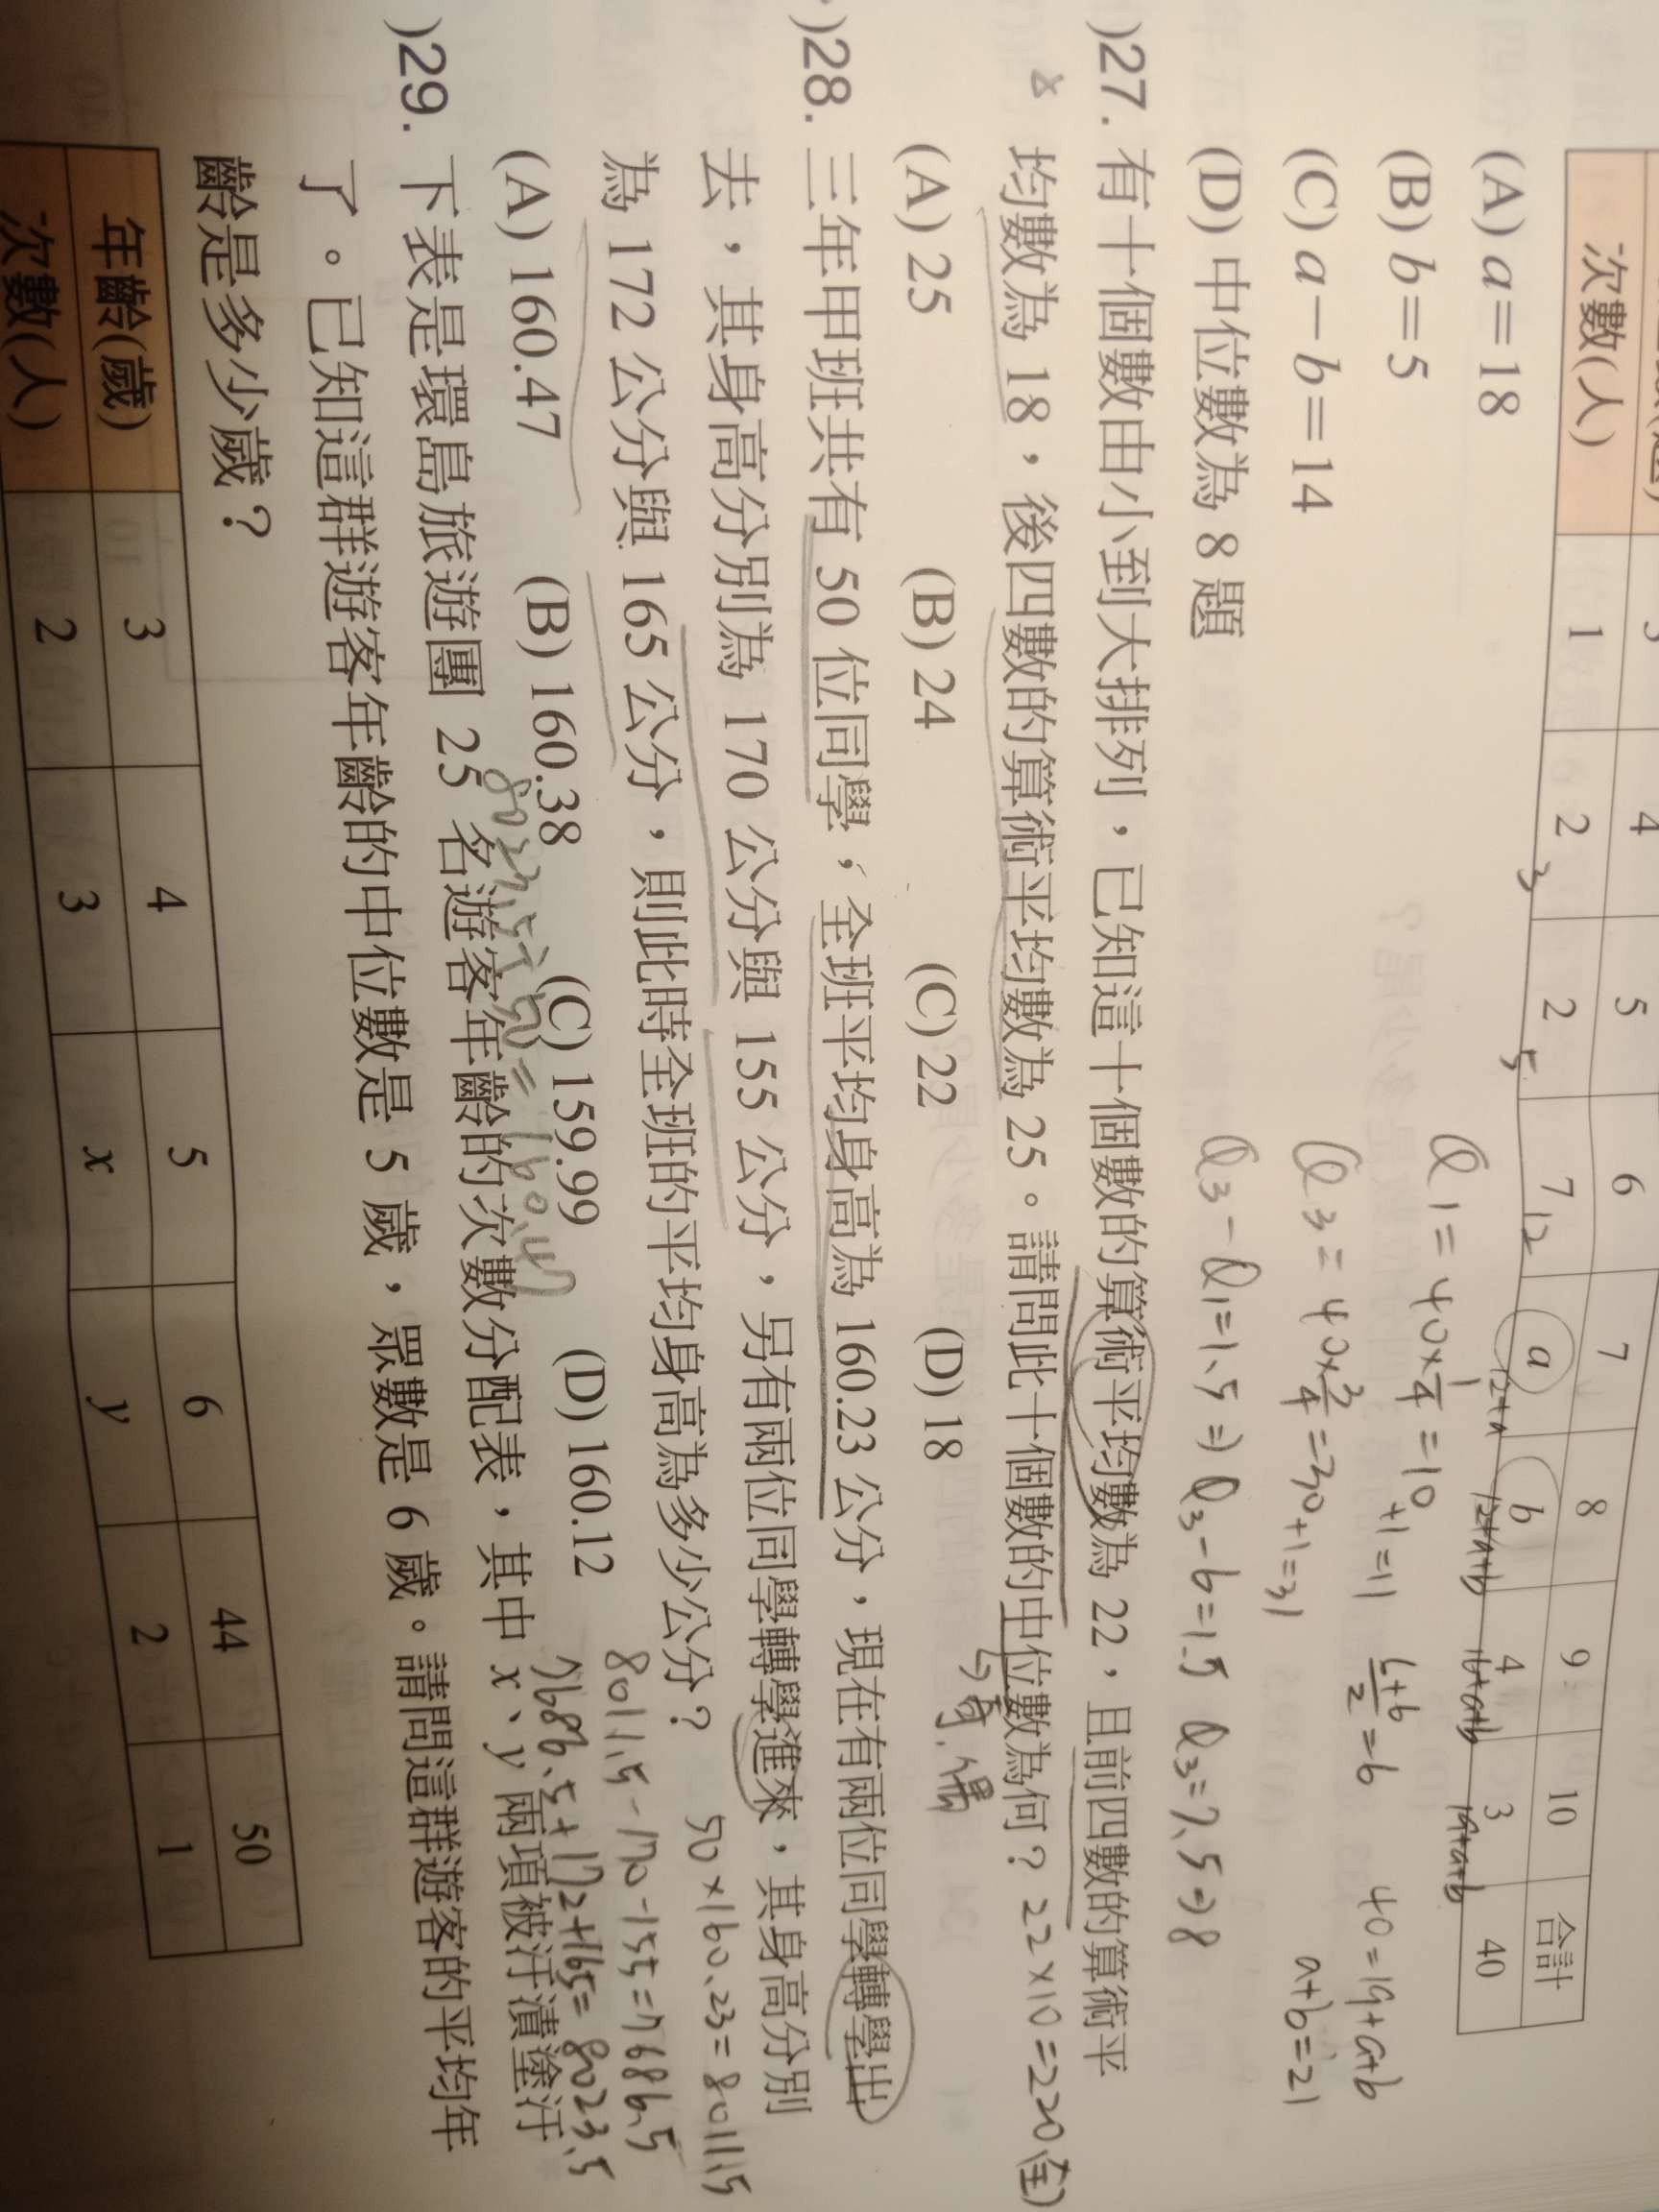 3 4 5 6 7 8 9 10 合計
次數(人) 1 2 2 7 a b 4 3 40
3 5 12 12+a 12+a+b 16+a+b 19+a+b
(A) a=18
(B) b=5
(C) a-b=14
(D) 中位數為 8 題
Q1=40×1/4=10 +1=11
6+6/2=6
40=19+a+b
a+b=21
Q3=40×3/4=30 +1=31
Q3-Q1=1.5⇒Q3-6=1.5 Q3=7.5→8
)27. 有十個數由小到大排列,已知這十個數的算術平均數為 22,且前四數的算術平
均數為 18,後四數的算術平均數為 25。請問此十個數的中位數為何? 22×10=220(全)
(A) 25 (B) 24 (C) 22 (D) 18
)28. 三年甲班共有 50 位同學,全班平均身高為 160.23 公分,現在有兩位同學轉學出
去,其身高分別為 170 公分與 155 公分,另有兩位同學轉學進來,其身高分別
為 172 公分與 165 公分,則此時全班的平均身高為多少公分?
50×160.23=8011.5
8011.5-170-155=7686.5
7686.5+172+165=8023.5
8023.5÷50=160.47
(A) 160.47 (B) 160.38 (C) 159.99 (D) 160.12
)29. 下表是環島旅遊團 25 名遊客年齡的次數分配表,其中 x、y 兩項被汙漬塗汙
了。已知這群遊客年齡的中位數是 5 歲,眾數是 6 歲。請問這群遊客的平均年
齡是多少歲?
年齡(歲) 3 4 5 6 44 50
次數(人) 2 3 x y 2 1